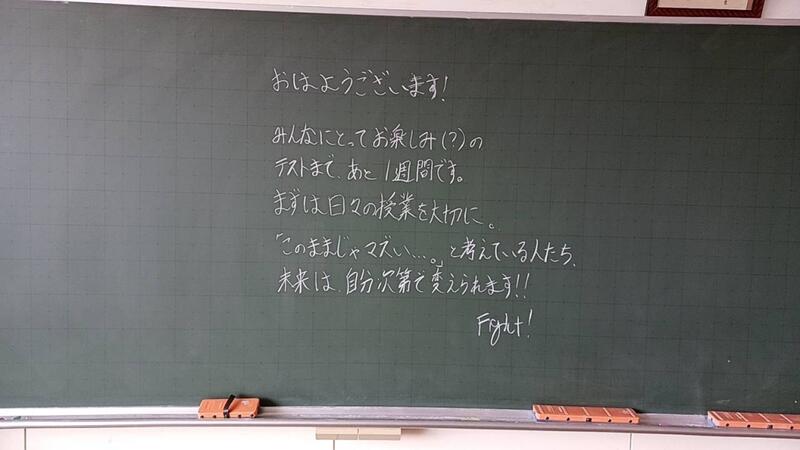 おはようございます!
みんなにとってお楽しみ(?)の
テストまで、あと1週間です。
まずは日々の授業を大切に。
「このままじゃマズい…。」と考えている人たち、
未来は、自分次第で変えられます!!
Fight!